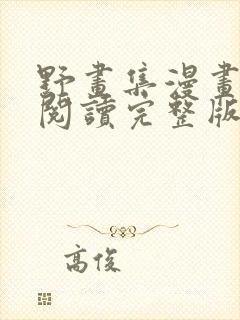 野畫集漫畫
閱讀完整版
高俊